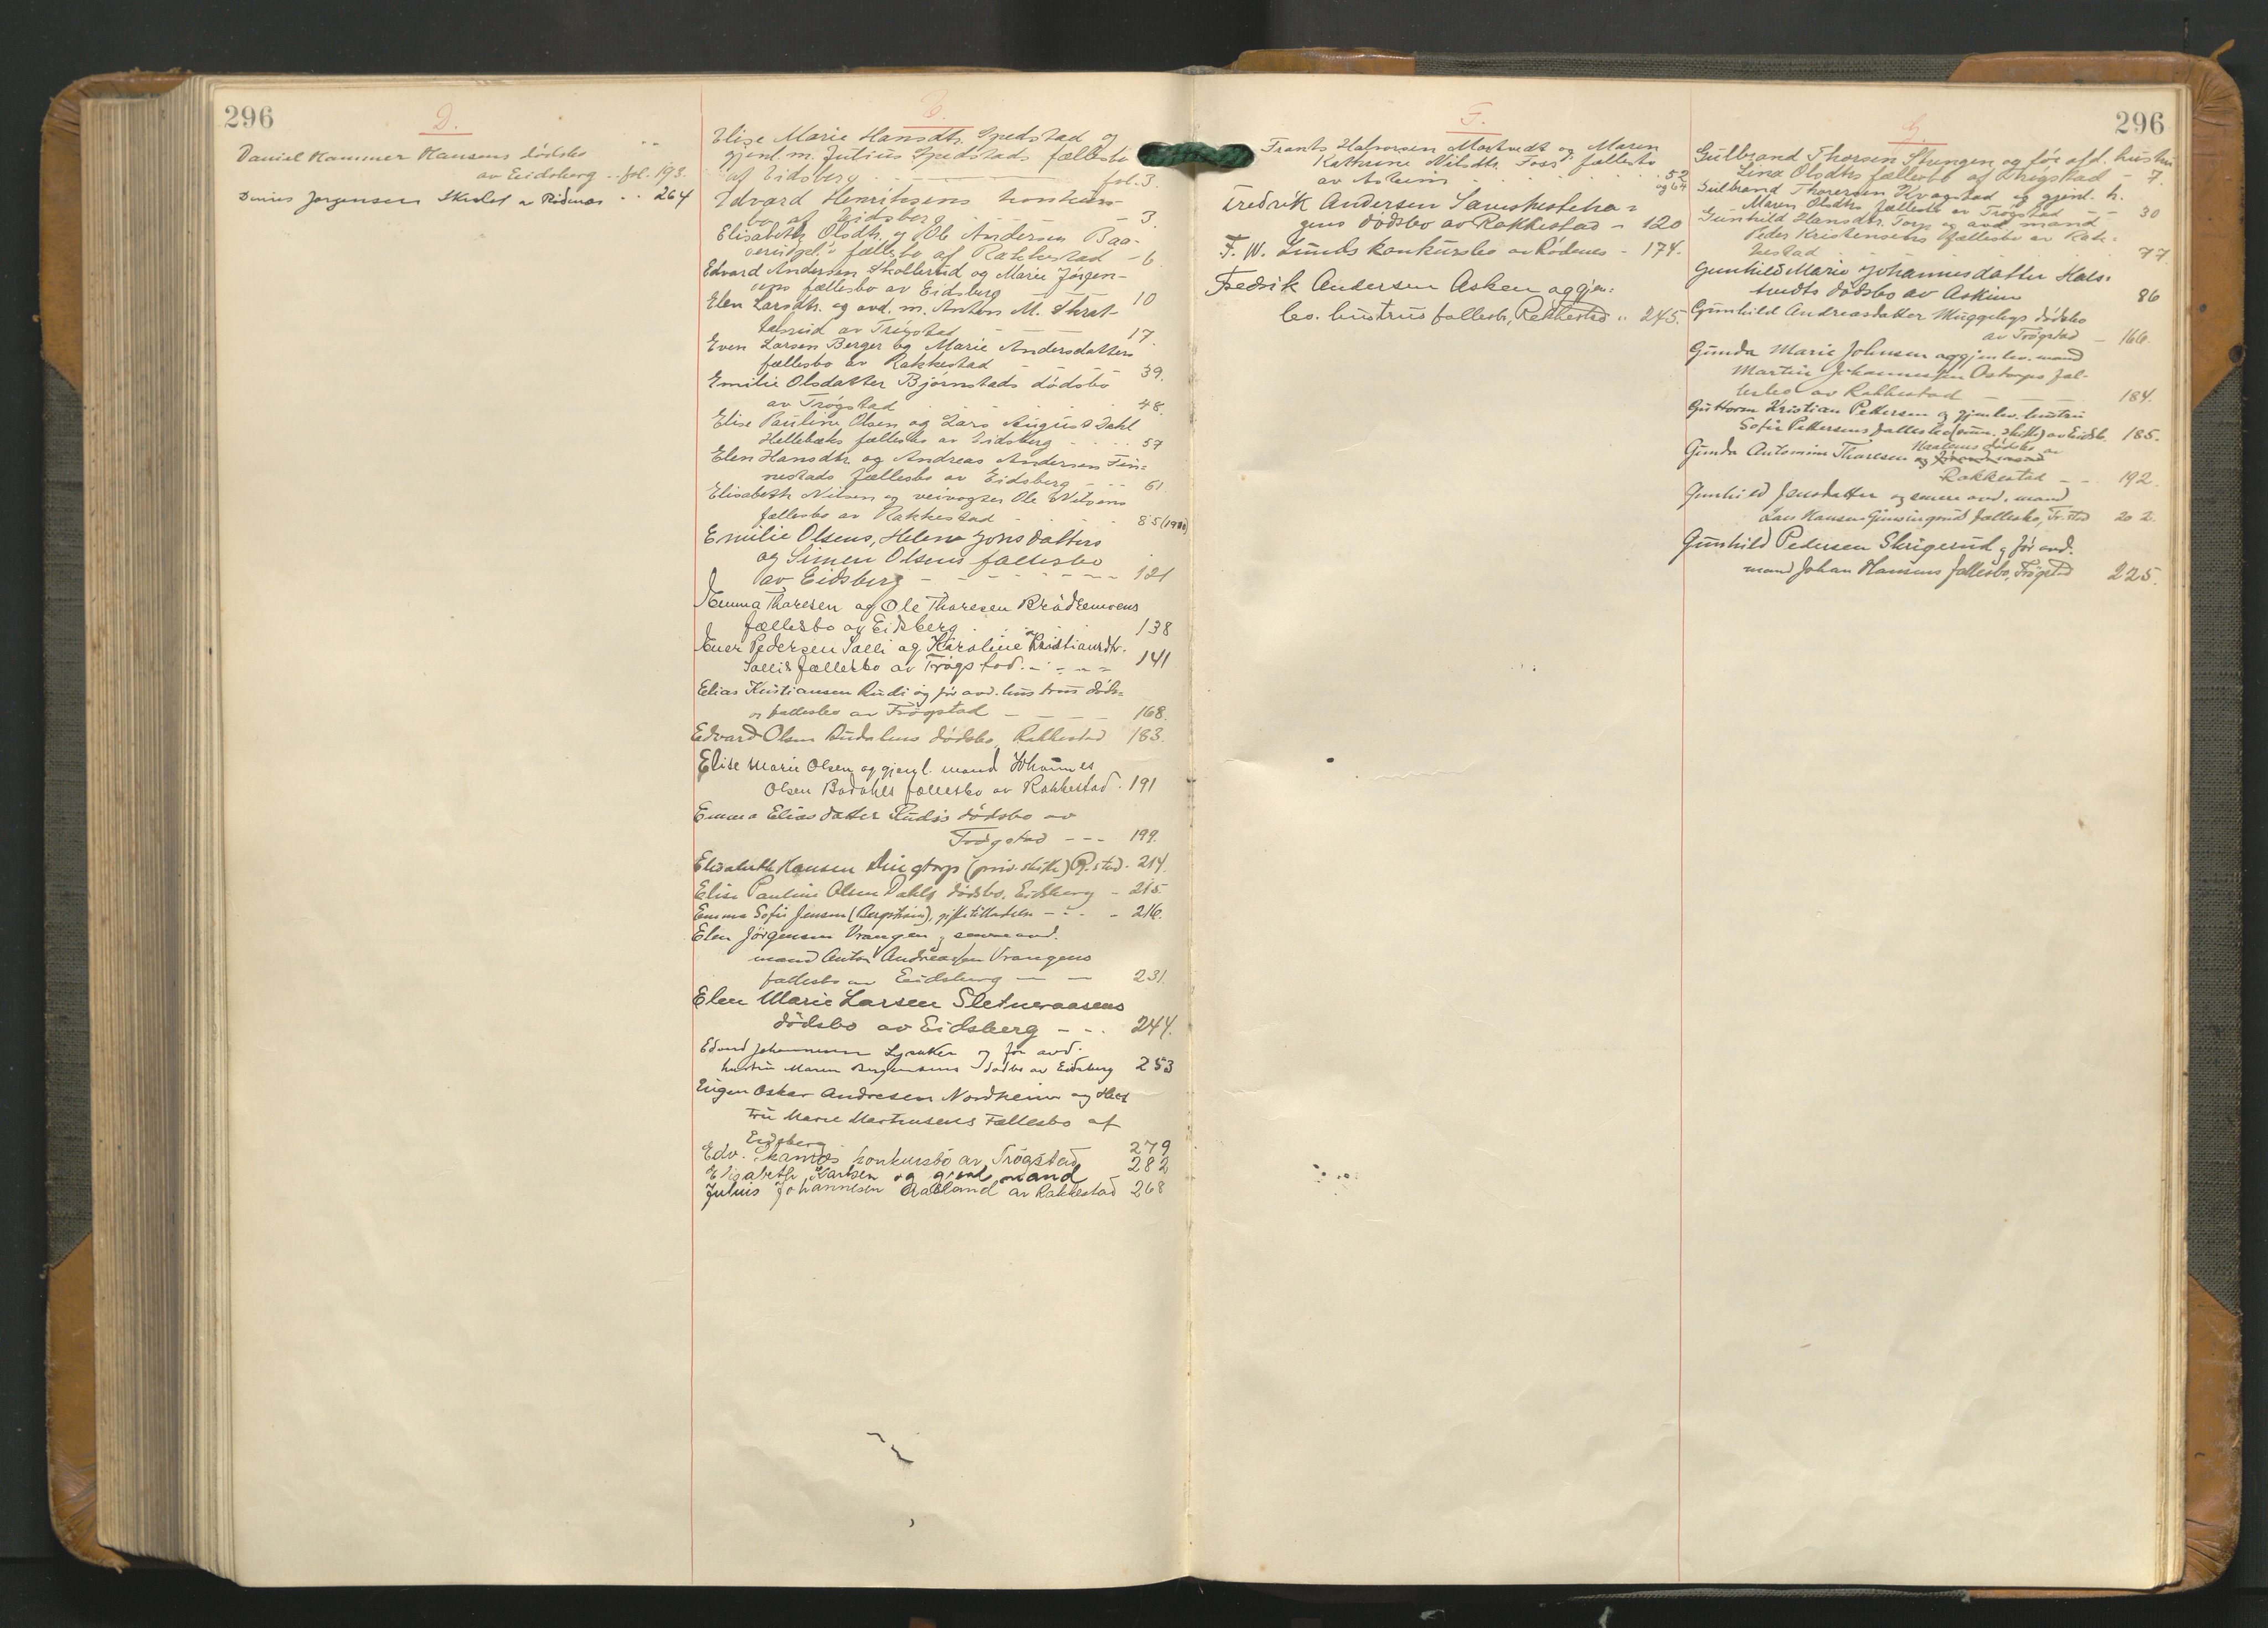 296
D.
Daniel Hammer Hansens dödsbo
av Eidsberg .. fol. 193.
Jørgensen av Rødenæs .. 264
E.
Elise Marie Hansdtr. Spedstad og
gjenl. m. Julius Spedstads fællesbo
af Eidsberg fol. 3.
Edvard Henriksens konkurs-
bo af Eidsberg - 3.
Elisabeth Olsdtr. og Ole Andersen Baa-
fællesbo af Rakkestad - 6
Edvard Andersen Skallerud og Marie Jørgen-
sens fællesbo av Eidsberg 10
Elen Larsdtr. og avd. m. Anton M. Skrat-
av Trøgstad 17.
Even Larsen Berger og Marie Andersdatters
fællesbo av Rakkestad 39.
Emilie Olsdatter Bjørnstads dödsbo
av Trøgstad 48.
Elise Pauline Olsen og Lars August Dahl
Hellebæks fællesbo av Eidsberg 57
Elen Hansdtr. og Andreas Andersen Fin=
nestads fællesbo av Eidsberg 61
Elisabeth Nilsen og veivogter Ole Nilsens
fællesbo av Rakkestad 85
Emilie Olsens, Helene Jonsdatters
og Simen Olsens fællesbo
av Eidsberg 121
Emma Thoresen og Ole Thoresen Brådremoens
fællesbo av Eidsberg 138
Pedersen Salli og Karoline Kristiansdtr.
Sallis fællesbo av Trøgstad 141
Elias Kristiansen Rudi og før avd. hustrus døds=
og fællesbo av Trøgstad 168.
Edvard Olsen dödsbo, Rakkestad 183.
Elise Marie Olsen og gjenl. mand Johannes
Olsen Bødahls fællesbo av Rakkestad. 191
Emma Eliasdatter Rudis dödsbo av
Trøgstad - - - 199.
Elisabeth Hansen (priv. skifte) R.stad. 214.
Elise Pauline Olsen Dahls dödsbo, Eidsberg - 215.
Emma Sofie Jensen (Bergstrøm), giftetilladelse - 216.
Elen Jørgensen Vrangen og senere avd.
mand Anton Andreassen Vrangens
fællesbo av Eidsberg 231.
Elen Marie Larsen Sletneraasens
dödsbo av Eidsberg - - 244.
Edvard Johannessen Lysaker og før avd.
hustru Maren av Eidsberg 253
Eugen Oskar Andresen Nordheim og Hust
tru Marie Martinsens Fællesbo af
Eidsberg 279
Edv. konkursbo av Trøgstad 282
Elisabeth Karlsen og gjenl. mand
Julius Johannesen Aaeland av Rakkestad 268
F.
Frants Halvorsen Martvedt og Maren
Kathrine Nilsdtr. Foss' fællesbo
av Askim 52
og 64
Fredrik Andersen
gens dödsbo av Rakkestad - 120
F. W. Lunds konkursbo av Rödenes - 174.
Fredrik Andersen Asken og gjen:
lev. hustrus fællesb., Rakkestad .. 245.
296
G.
Gulbrand Thorsen Strengen og før afd. hustru
Lina Olsdtrs fællesbo af Trøgstad - 7.
Gulbrand Thoresen Kvagstad og gjenl. h.
Maren Olsdtrs fællesbo av Trøgstad 30
Gunhild Hansdtr. Torp og avd mand
Peder Kristensens fællesbo av Rak=
kestad 77
Gunhild Marie Johannesdatter Kals:
tvedts dödsbo av Askim 86
Gunhild Andreasdatter Muggebys dödsbo
av Trøgstad - 166.
Gunda Marie Johnsen og gjenlev. mand
Martin Johannessen Ostorps fæl-
lesbo av Rakkestad 184.
Guttorm Kristian Pettersen og gjenlev. hustru
Sofie Pettersens fællesbo av Eidsb. 185.
Gunda Antonine Thoresen dödsbo av
Rakkestad - - 192.
Gunhild Jensdatter og senere avd. mand
Lars Hansen fællesbo, Tr.stad 202.
Gunhild Pedersen Skrigerud og før avd.
mand Johan Hansens fællesbo, Trøgstad 225.